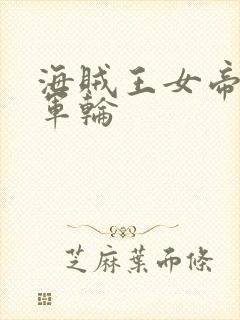 海賊王女帝
軍輪
芝麻葉而條